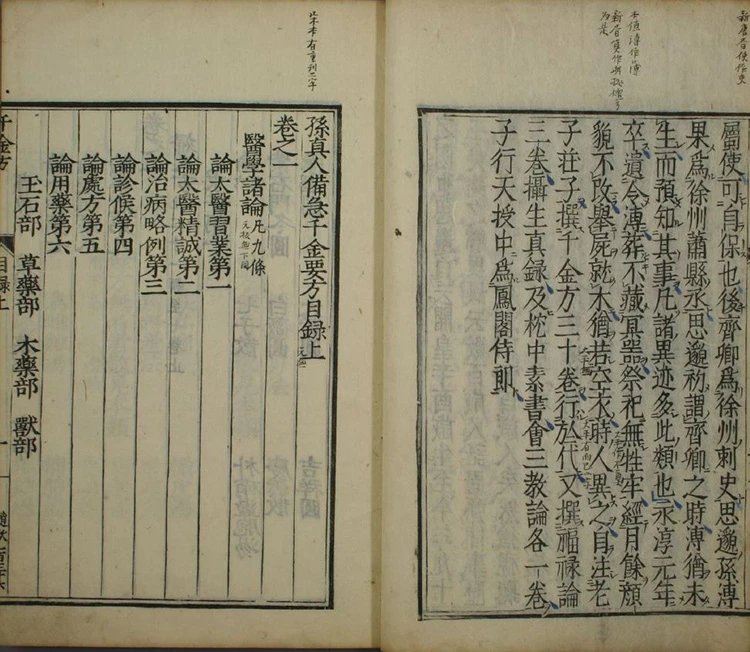 屬使可自保也後齊卿爲徐州刺史思邈孫溥
果爲徐州蕭縣丞思邈初謂齊卿之時溥猶未
生而預知其事凡諸異迹多此類也永淳元年
卒遺令薄葬不藏冥器祭祀無牲牢經月餘顏
貌不改舉屍就木猶若空衣時人異之自注老
子莊子撰千金方三十卷行於代又撰福禄論
三卷攝生真録及枕中素書會三教論各一卷
子行天授中爲鳳閣侍郎
孫真人備急千金要方目録上
卷之一
醫學諸論凡九條
論太醫習業第一
論太醫精誠第二
論治病略例第三
論診候第四
論處方第五
論用藥第六
玉石部 草藥部 木藥部 獸部
千金方 目録上 一